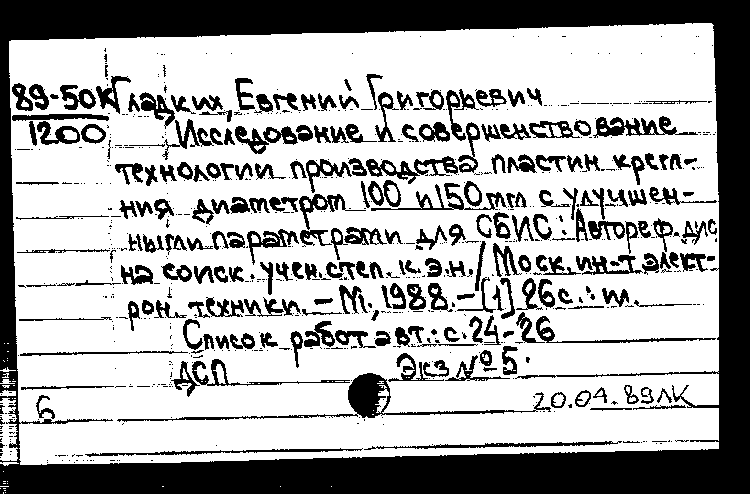 89-50К Гладких, Евгений Григорьевич
1200 Исследование и совершенствование
технологии производства пластин крем-
ния диаметром 100 и 150 mm с улучшен-
ными параметрами для СБИС: Автореф. дис
на соиск. учен. степ. к.э.н. / Моск. ин-т элект-
рон. техники. – М., 1988. – [1] 26 с. : ил.
Список работ авт.: с. 24-26
ДСП Экз № 5.
6 20.04.89 ЛК